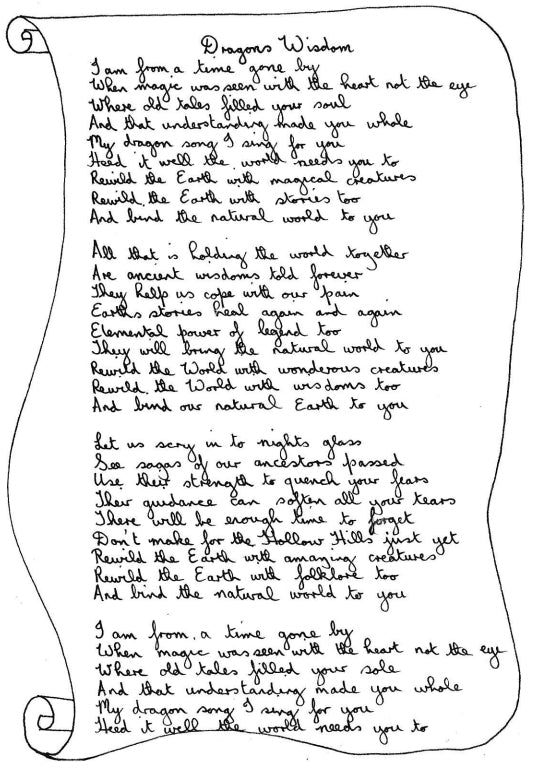 Dragons Wisdom
I am from a time gone by
When magic was seen with the heart not the eye
Where old tales filled your soul
And that understanding made you whole
My dragon song I sing for you
Heed it well the world needs you to
Rewild the Earth with magical creatures
Rewild the Earth with stories too
And bind the natural world to you
All that is holding the world together
Are ancient wisdoms told forever
They help us cope with our pain
Earths stories heal again and again
Elemental power of legend too
They will bring the natural world to you
Rewild the World with wonderous creatures
Rewild the World with wisdoms too
And bind our natural Earth to you
Let us scry in to nights glass
See sagas of our ancestors passed
Use their strength to quench your fears
Their guidance can soften all your tears
There will be enough time to forget
Don't make for the Hollow Hills just yet
Rewild the Earth with amazing creatures
Rewild the Earth with folklore too
And bind the natural world to you
I am from a time gone by
When magic was seen with the heart not the eye
Where old tales filled your sole
And that understanding made you whole
My dragon song I sing for you
Heed it well the world needs you to